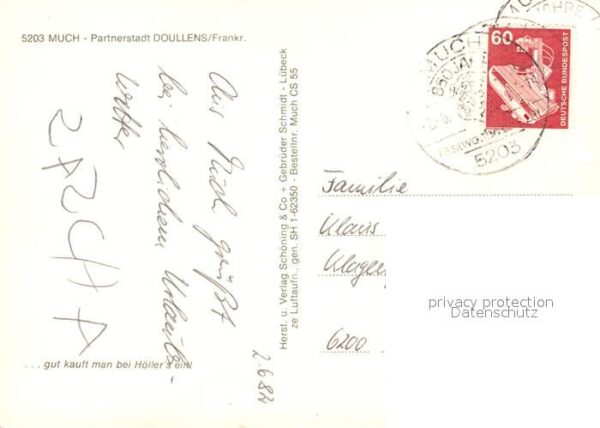 5203 MUCH - Partnerstadt DOULLENS/Frankr.
Aus Much grüßt
bei herrlichem Urlaubs-
wetter
. . . gut kauft man bei Höller's ein!
2.6.82
Herst. u. Verlag Schöning & Co + Gebrüder Schmidt - Lübeck
ze Luftaufn., gen. SH 1-62350 - Bestellnr. Much CS 55
60
DEUTSCHE BUNDESPOST
MUCH
850 JAHRE
5203
Familie
Klaus
6200
privacy protection
Datenschutz